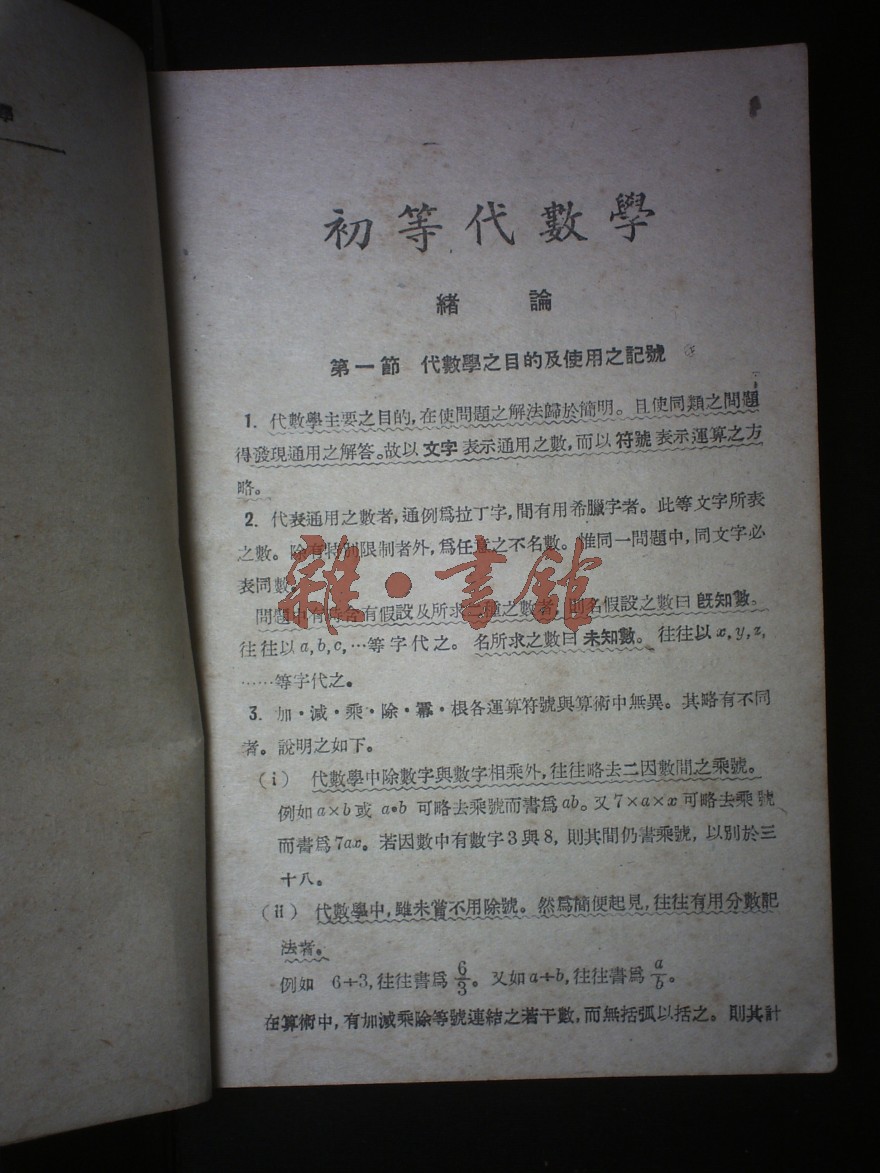 學
初等代數學
緒論
第一節 代數學之目的及使用之記號
1. 代數學主要之目的,在使問題之解法歸於簡明。且使同類之問題
得發現通用之解答。故以文字表示通用之數,而以符號表示運算之方
略。
2. 代表通用之數者,通例爲拉丁字,間有用希臘字者。此等文字所表
之數。除有特別限制者外,爲任意之不名數。惟同一問題中,同文字必
表同數。
問題中有時含有假設及所求二種之數者,則名假設之數曰旣知數。
往往以a,b,c,…等字代之。名所求之數曰未知數。往往以x,y,z,
……等字代之。
3. 加·減·乘·除·冪·根各運算符號與算術中無異。其略有不同
者。說明之如下。
(i) 代數學中除數字與數字相乘外,往往略去二因數間之乘號。
例如a×b或 a•b 可略去乘號而書爲ab。又7×a×x可略去乘號
而書爲7ax。若因數中有數字3與8,則其間仍書乘號,以別於三
十八。
(ii) 代數學中,雖未嘗不用除號。然爲簡便起見,往往有用分數記
法者。
例如 6÷3,往往書爲6/3。又如a÷b,往往書爲a/b。
在算術中,有加減乘除等號連結之若干數,而無括弧以括之。則其計
雜·書館